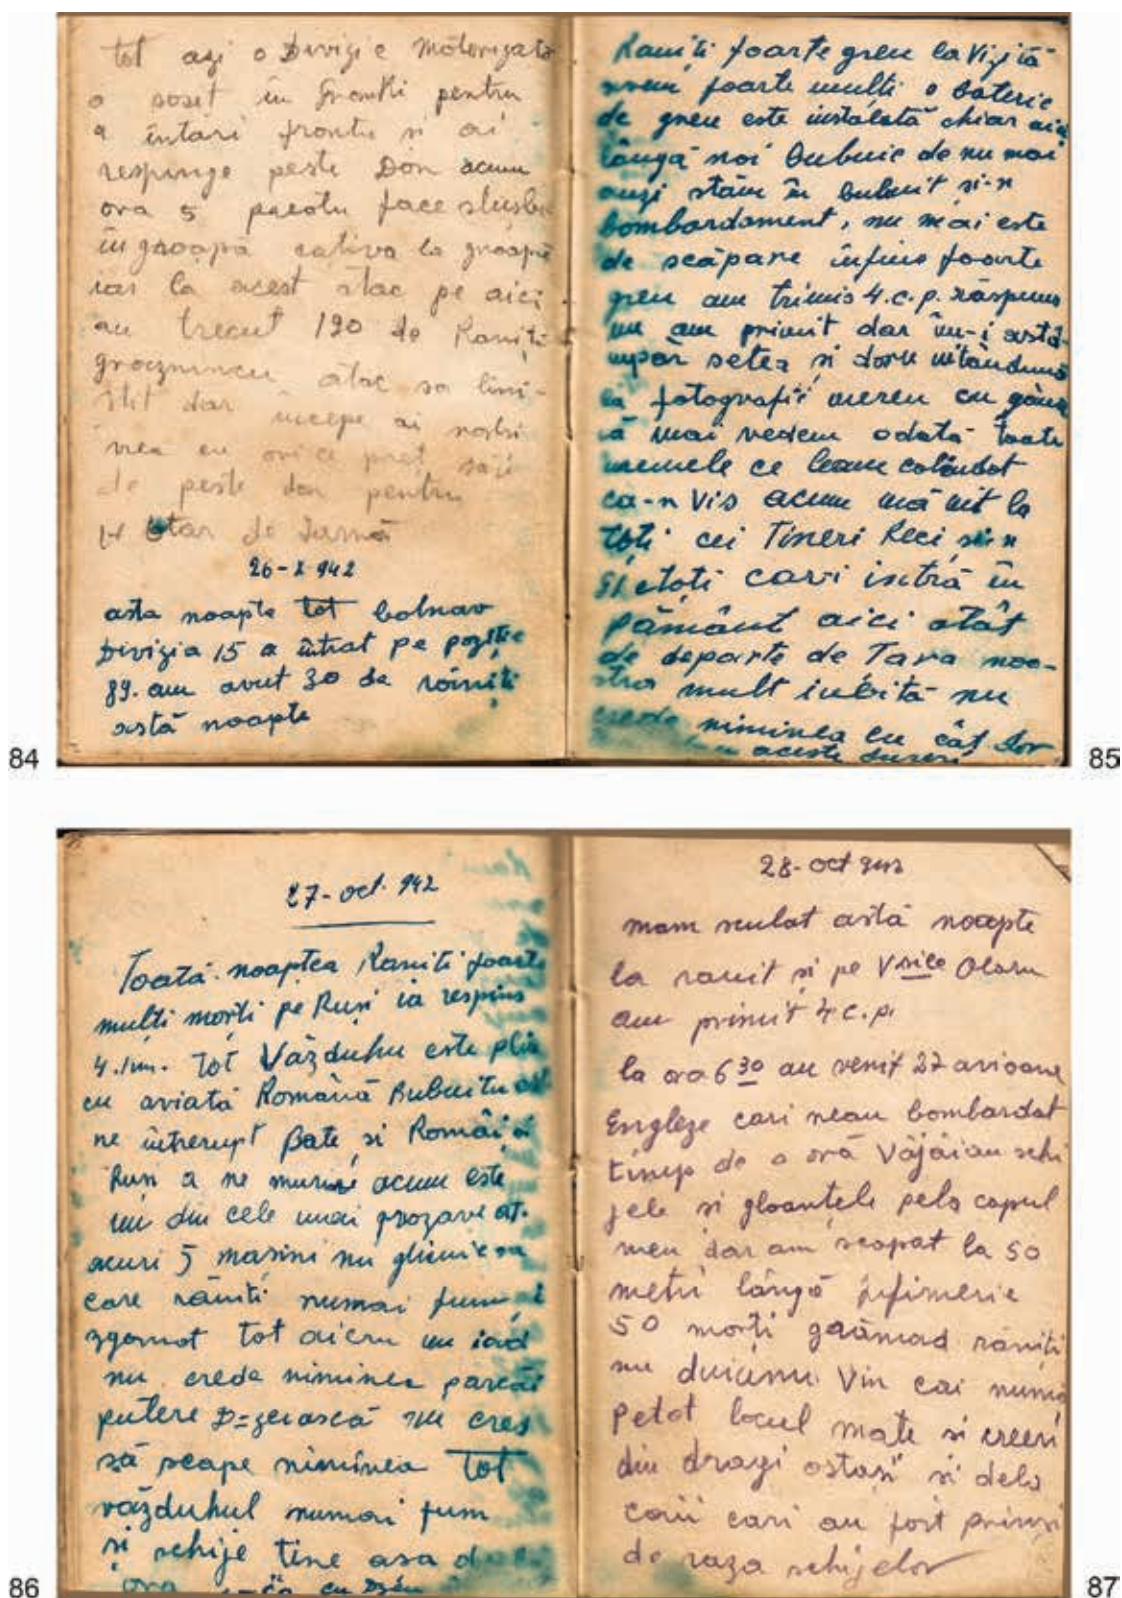 tot azi o Divizie motorizata
a sosit in Gromki pentru
a întări frontu si ai
respinge peste Don acum
ora 5 preotu face slujba
în groapă cativa la groapă
iar la acest atac pe aici
au trecut 190 de Raniti
atac sa lini-
stit dar incepe ai nostri
vrea cu orice preț
de peste don pentru
de Iarnă
26-X 942
asta noapte tot bolnav
Divizia 15 a întrat pe poziție
89. am avut 30 de răniti
astă noapte
84
Raniti foarte greu la Vizită
avem foarte multi o baterie
de greu este instalată chiar aici
lângă noi Bubuie de nu mai
auzi stăm în bubuit si-n
bombardament, nu mai este
de scăpare înfine foarte
greu am trimis 4.c.p. răspuns
nu am primit dar îm-i astâ-
mpăr setea si doru uitândumă
la fotografii mereu cu gând
să mai vedem odată toate
vremele ce leam colindat
ca-n Vis acum mă uit la
toți cei Tineri Reci si-n
toti cari intră în
pământ aici atât
de departe de Tara noa-
stra mult iubită nu
crede niminea cu cât dor
aceste dureri
85
27-oct. 942
Toată noaptea Raniti foarte
multi morți pe Rusi ia respins
4.km. Tot Văzduhu este plin
cu aviată Română Bubuitu
ne intrerupt Bate si Români si
Rusi a ne murire acum este
un din cele mai grozave at-
acuri 5 masini nu
care răniti numai fum si
zgomot tot aicru un iad
nu crede niminea parcăi
putere D=zeiască nu cred
să scape niminea Tot
văzduhul numai fum
și schije tine asa de
ora cu
86
28-oct 942
mam sculat astă noapte
la ranit si pe Vsile Olaru
am primit 4.c.p.
la ora 6 30 au venit 27 avioane
Engleze cari neau bombardat
timp de o oră Văjâiau schi
jele si gloanțele pela capul
meu dar am scapat la 50
metri lângă infirmerie
50 morti grămad răniti
nu Vin cai numa
petot locul mațe si creeri
din dragi ostași si dela
caii cari au fost prinși
de raza schijelor
87